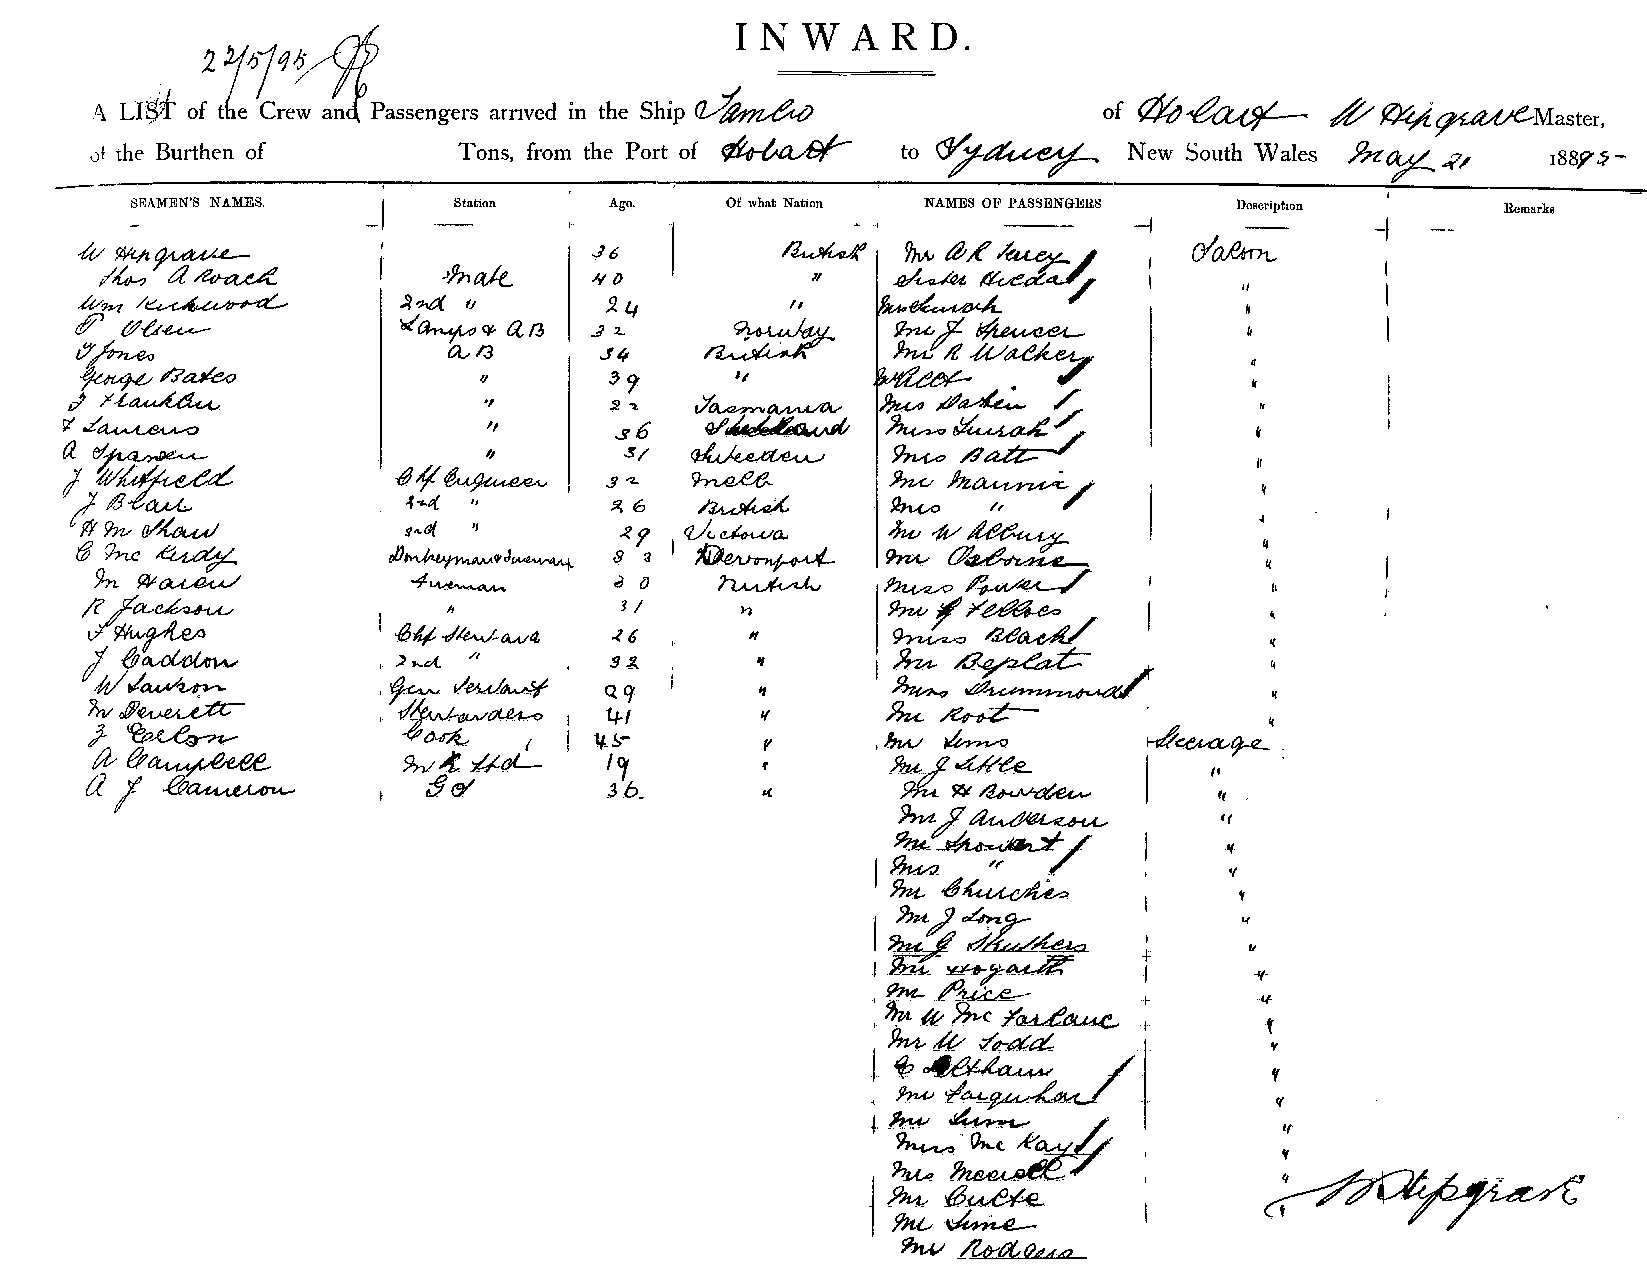 INWARD.
22/5/95
A LIST of the Crew and Passengers arrived in the Ship Tambo of Hobart W Hipgrave Master,
of the Burthen of Tons, from the Port of Hobart to Sydney New South Wales May 21 1895
SEAMEN'S NAMES. Station Age. Of what Nation NAMES OF PASSENGERS Description Remarks
W Hipgrave 36 British Mr A R Saloon
Thos A Roach Mate 40 " Sister "
Wm Kirkwood 2nd " 24 " "
Olsen Lamps & AB 32 Norway Mr J Spencer "
Jones AB 34 British Mr R Walker "
George Bates " 39 " "
Franklin " 22 Tasmania Mrs "
Laurens " 36 Miss "
A " 31 Sweeden Mrs Batt "
J Whitfield Chf Engineer 32 Melb Mr "
J Blair 2nd " 26 British Mrs " "
H M Shaw 3rd " 29 Victoria Mr W Albury "
C Mc Kirdy Donkeyman & Fireman 33 Devonport Mr Osborne "
M Fireman 30 British Miss Power "
R Jackson " 31 " Mr "
Hughes Chf Steward 26 " Miss Black "
J Caddon 2nd " 32 " Mr Beplat "
W Gen Servant 29 " Miss Drummond "
M Deverett Stewardess 41 " Mr Root "
Cook 45 " Mr Sims Steerage
A Campbell 19 " Mr J Little "
A J Cameron 36 " Mr H Bowden "
Mr J Anderson "
Mr "
Mrs " "
Mr Churches "
Mr J Long "
Mr G Struthers "
Mr Hogarth "
Mr Price "
Mr W Mc Farlane "
Mr W Todd "
C "
Mr Farquhar "
Mr "
Miss Mc Kay "
Mrs "
Mr "
Mr Sime
Mr Rodgers
W Hipgrave